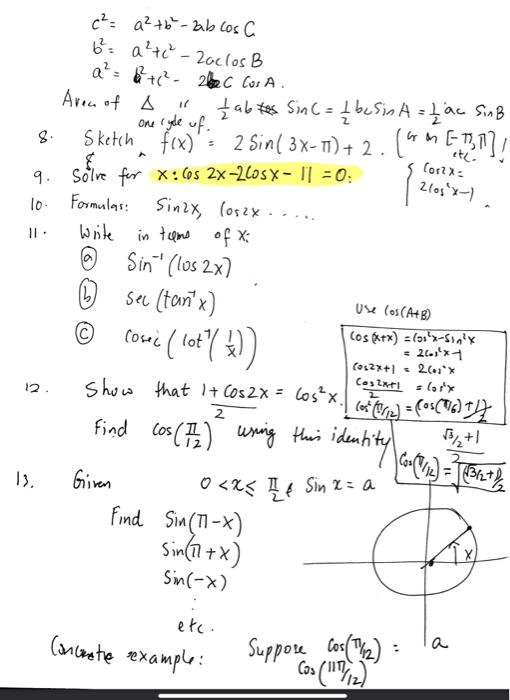 c² = a² + b² - 2ab cos C
b² = a² + c² - 2ac cos B
a² = b² + c² - 2bc Cos A.
Area of Δ is ½ ab Sin C = ½ bc Sin A = ½ ac Sin B
one cycle of.
8. Sketch f(x) = 2 Sin(3x-π) + 2. [or on [-π,π]!
etc.
&
9. Solve for x: Cos 2x - 2Cos x - 11 = 0.
{ Cos 2x =
2 Cos² x - 1
10. Formulas: Sin 2x, Cos 2x .....
11. Write in terms of x:
(a) Sin⁻¹ (Cos 2x)
(b) Sec (tan⁻¹ x)
(c) Cosec (Cot⁻¹ (1/x))
Use Cos(A+B)
Cos(x+x) = Cos² x - Sin² x
= 2Cos² x - 1
Cos 2x + 1 = 2Cos² x
(Cos 2x + 1)/2 = Cos² x
Cos² (π/12) = (Cos(π/6) + 1)/2
12. Show that (1 + Cos 2x)/2 = Cos² x.
(√3/2 + 1)/2
Find Cos(π/12) using this identity
Cos(π/12) = √((√3/2 + 1)/2)
13. Given 0 < x ≤ π/2 & Sin x = a
Find Sin(π-x)
Sin(π+x)
x
Sin(-x)
⋮
etc.
Concrete example: Suppose Cos(π/12) = a
Cos(11π/12)